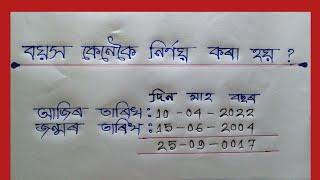 বয়স কেনেকৈ নিৰ্ণয় কৰা হয় ?
দিন মাহ বছৰ
আজিৰ তাৰিখ : 10 - 04 - 2022
জন্মৰ তাৰিখ : 15 - 06 - 2004
25 - 09 - 0017